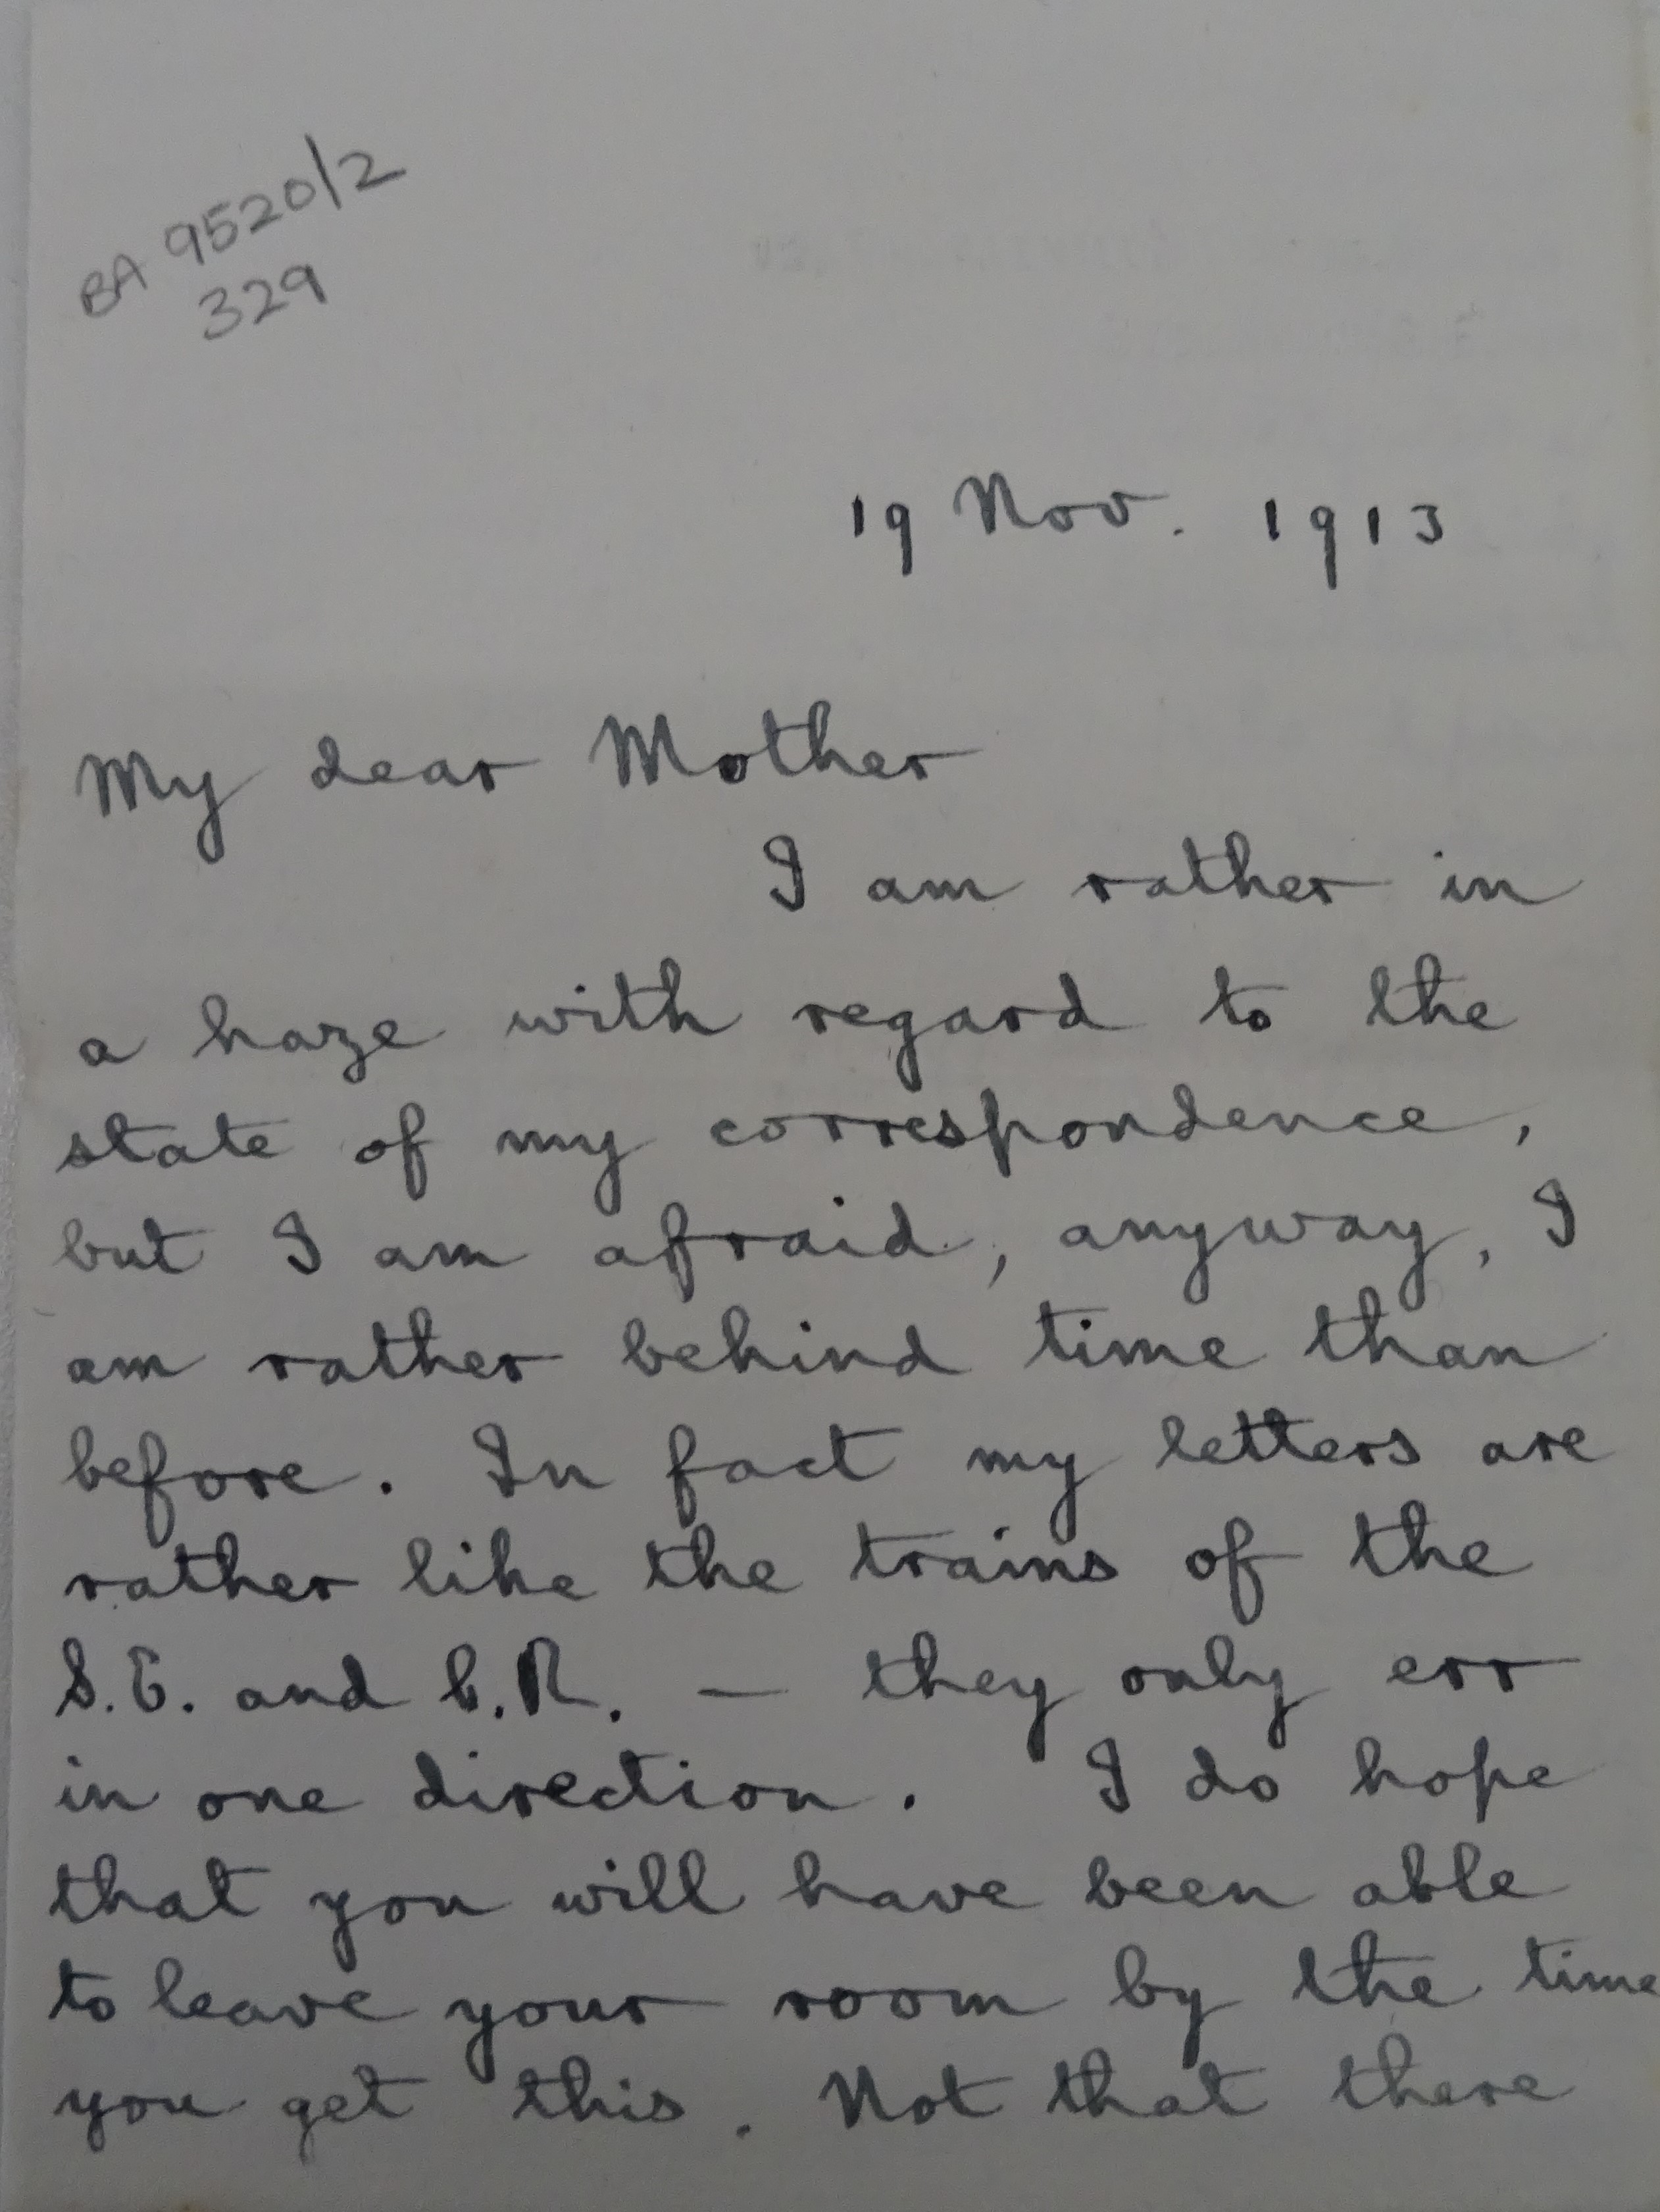 BA 9520/2
329
19 Nov. 1913
My dear Mother
I am rather in
a haze with regard to the
state of my correspondence,
but I am afraid, anyway, I
am rather behind time than
before. In fact my letters are
rather like the trains of the
S.E. and C.R. — they only err
in one direction. I do hope
that you will have been able
to leave your room by the time
you get this. Not that there